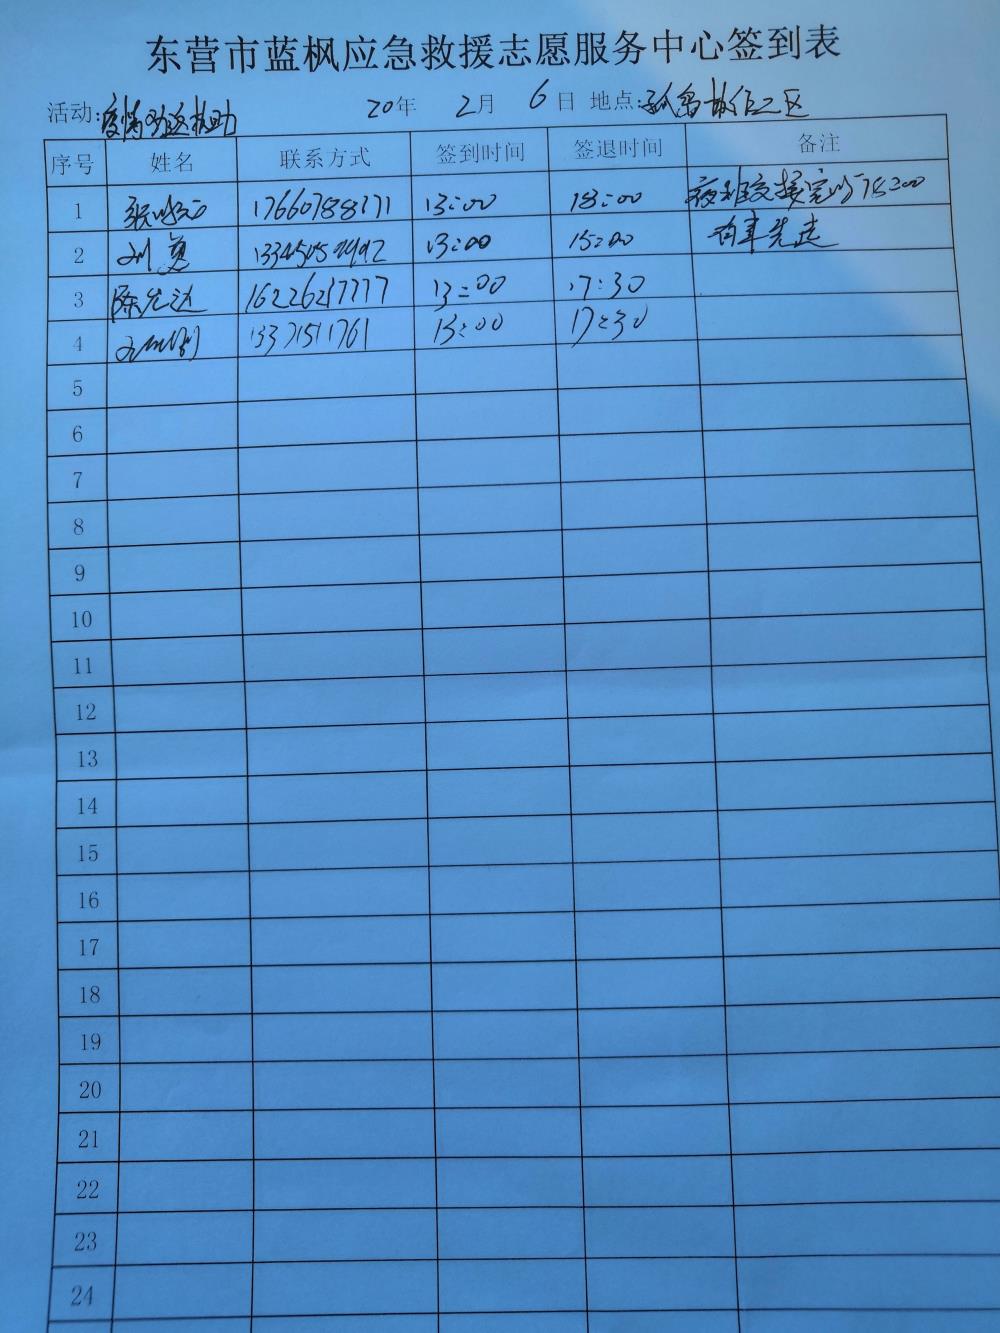 东营市蓝枫应急救援志愿服务中心签到表
活动: 疫情防控救助 20年 2月 6日 地点:
序号 姓名 联系方式 签到时间 签退时间 备注
1 17660788171 13:00 18:00 夜班交接完毕18:00
2 刘勇 13:00 15:00 有事先走
3 陈宏达 16226217777 13:00 17:30
4 13371511761 13:00 17:30
5
6
7
8
9
10
11
12
13
14
15
16
17
18
19
20
21
22
23
24